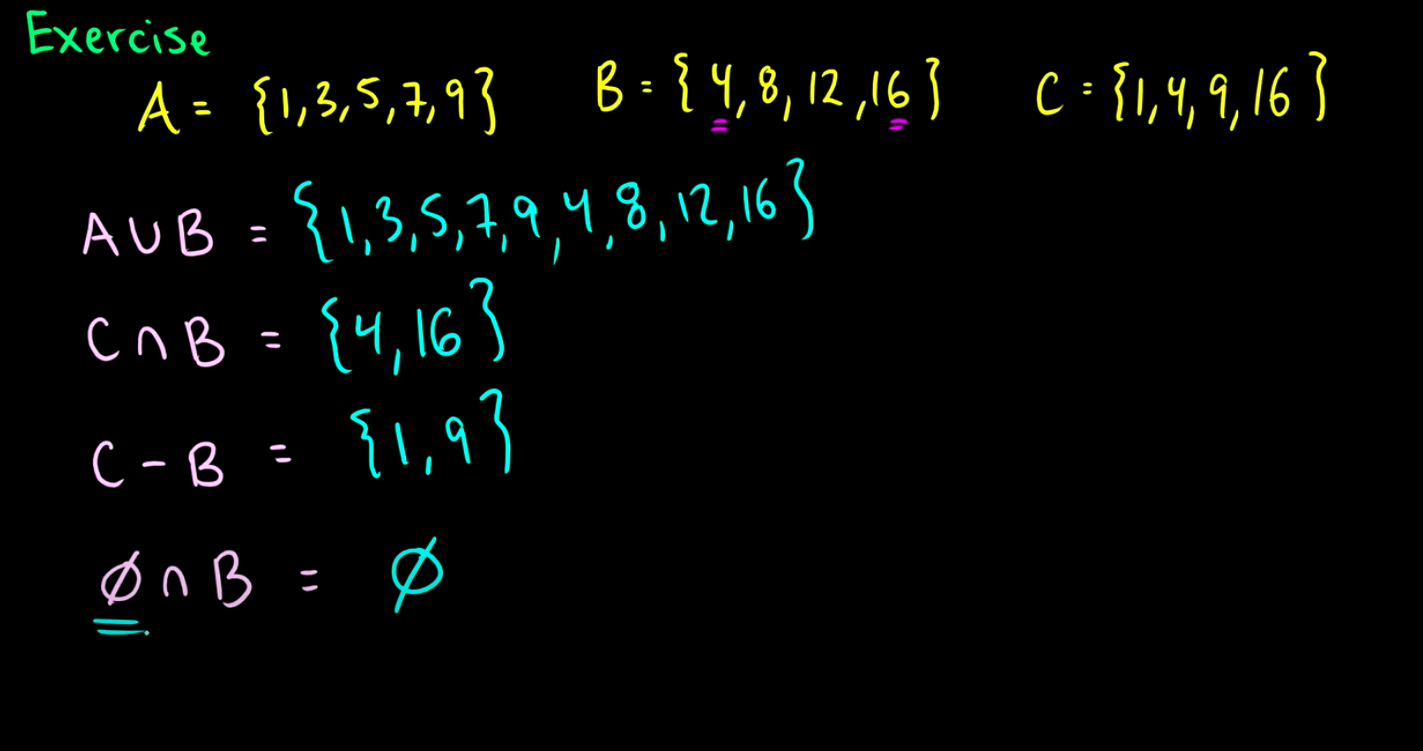 Exercise
A = {1,3,5,7,9} B = {4,8,12,16} C = {1,4,9,16}
A∪B = {1,3,5,7,9,4,8,12,16}
C∩B = {4,16}
C-B = {1,9}
∅∩B = ∅